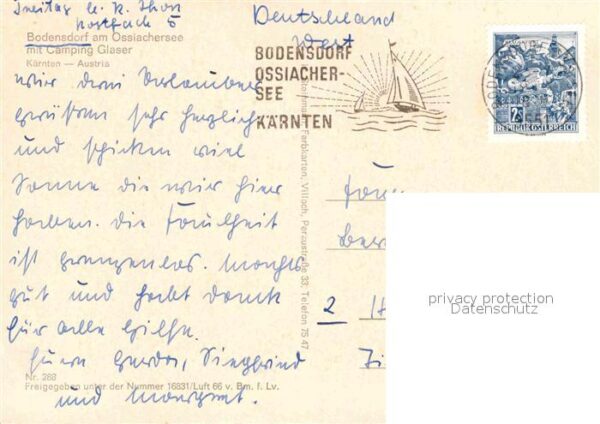 Freitag b. K. Thon
Postfach 5
Deutschland
West
Bodensdorf am Ossiachersee
mit Camping Glaser
Kärnten — Austria
BODENSDORF
OSSIACHER-
SEE
KÄRNTEN
REPUBLIK ÖSTERREICH
wir drei Urlauber
grüssen sehr herzlich
und schicken viel
Sonne die wir hier
haben. die Faulheit
ist grenzenlos.
gut und habt Dank
für alle Hilfe.
Eure Gerda, Siegfried
und Margret.
Farbkarten, Villach, Peraustraße 33, Telefon 75 47
2
Nr. 288
Freigegeben unter der Nummer 16831/Luft 66 v. Bm. f. Lv.
privacy protection
Datenschutz